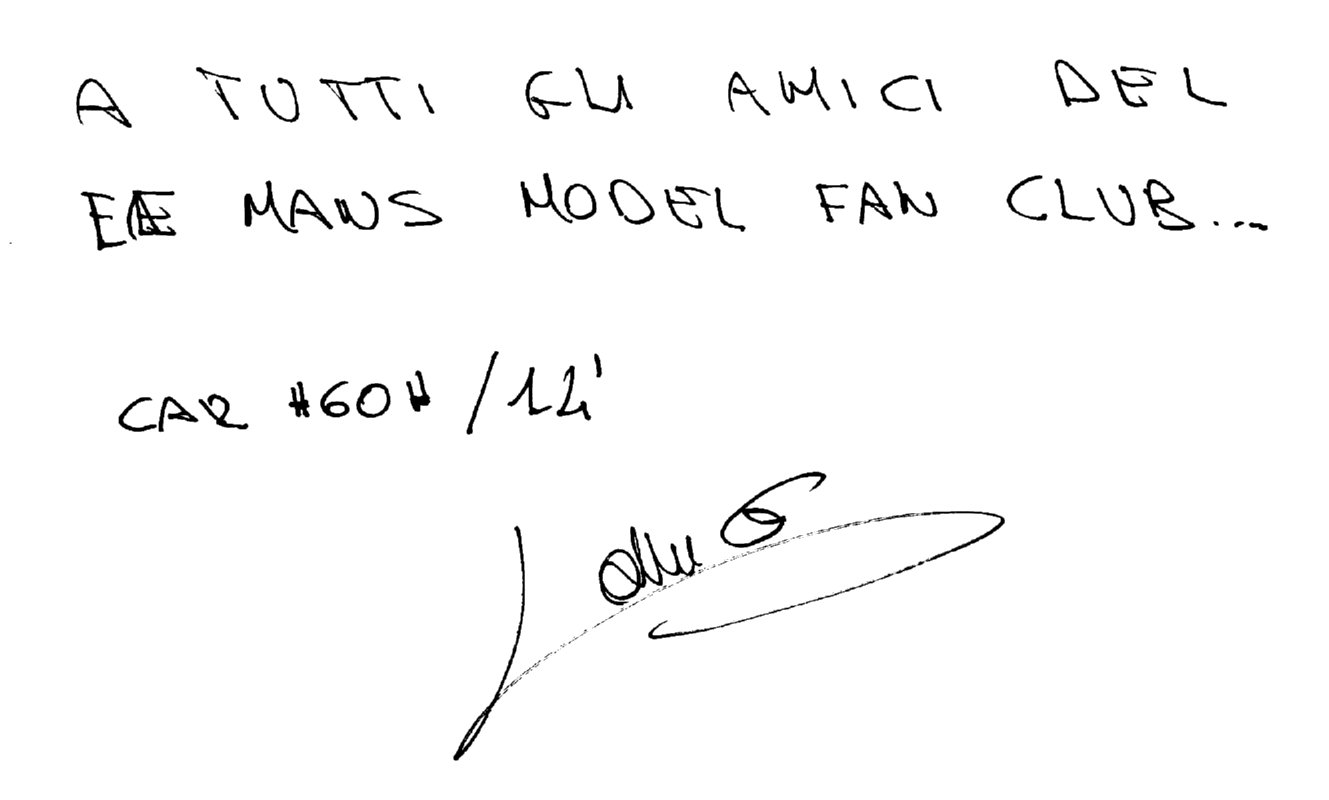 A TUTTI GLI AMICI DEL
LE MANS MODEL FAN CLUB...
CAR #60# /14'